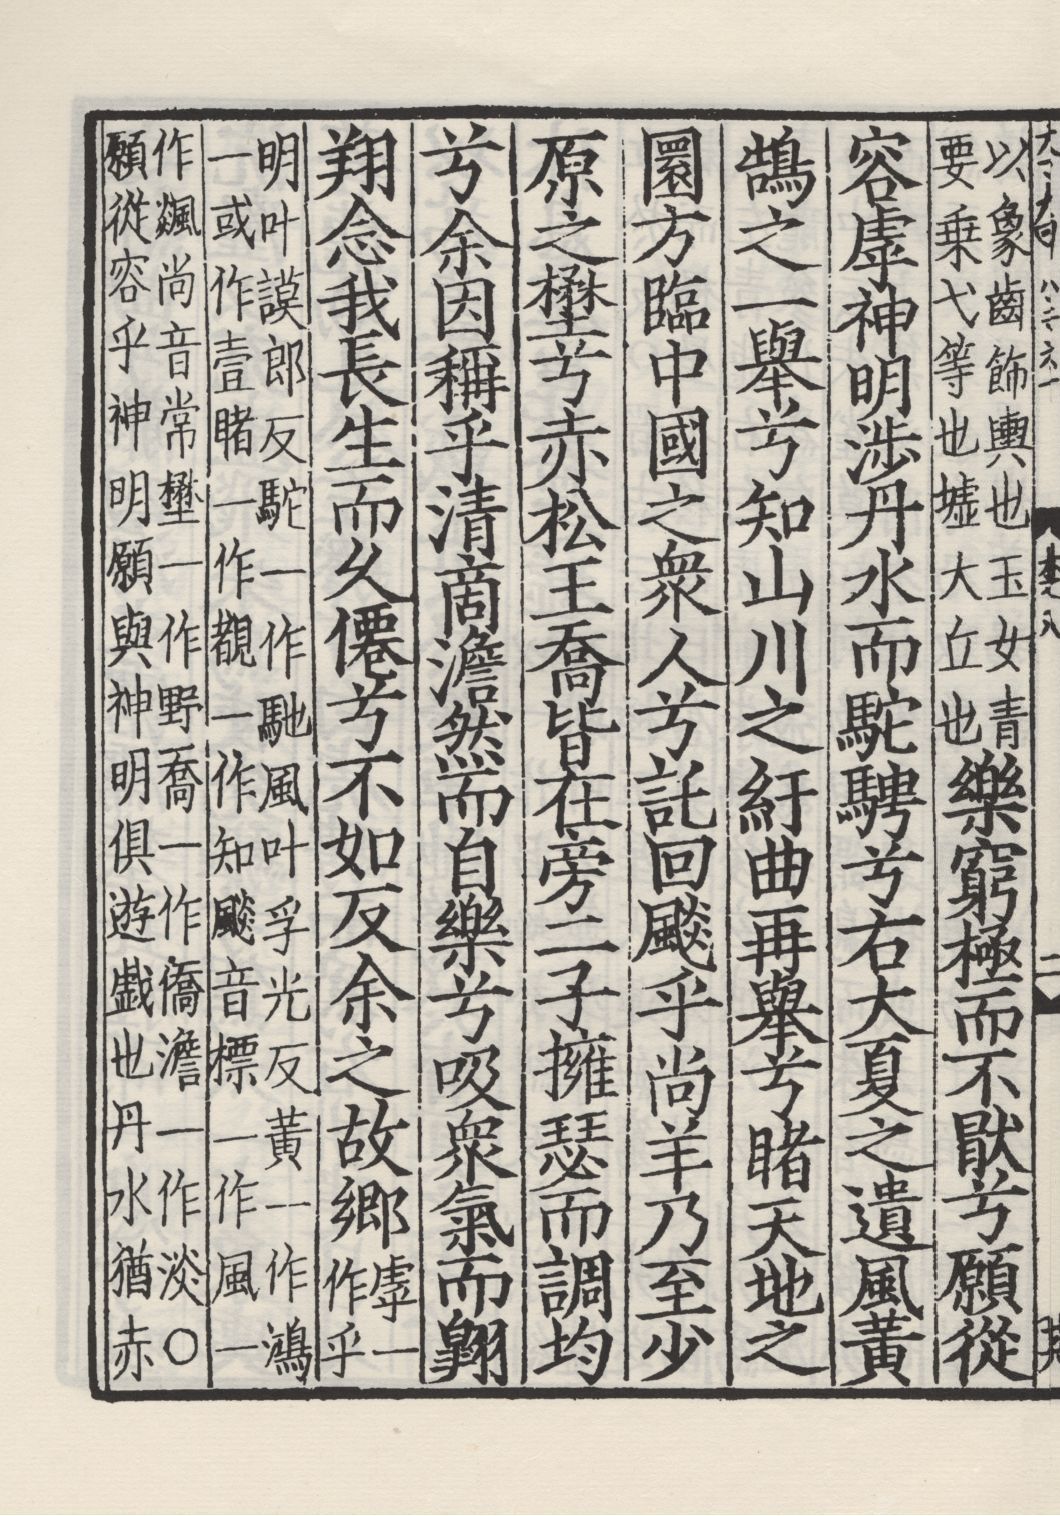 以象齒飾輿也玉女青
要乗弋等也墟大丘也
樂窮極而不猒兮願從
容虖神明涉丹水而駝騁兮右大夏之遺風黃
鵠之一舉兮知山川之紆曲再舉兮睹天地之
圜方臨中國之衆人兮託回飈乎尚羊乃至少
原之壄兮赤松王喬皆在旁二子擁瑟而調均
兮余因稱乎清商澹然而自樂兮吸衆氣而翺
翔念我長生而乆僊兮不如反余之故鄉
虖一
作乎
明叶謨郎反駝一作馳風叶孚光反黃一作鴻
一或作壹睹一作觀一作知飈音標一作風一
作飊尚音常壄一作野喬一作僑澹一作淡〇
願從容乎神明願與神明俱遊戱也丹水猶赤